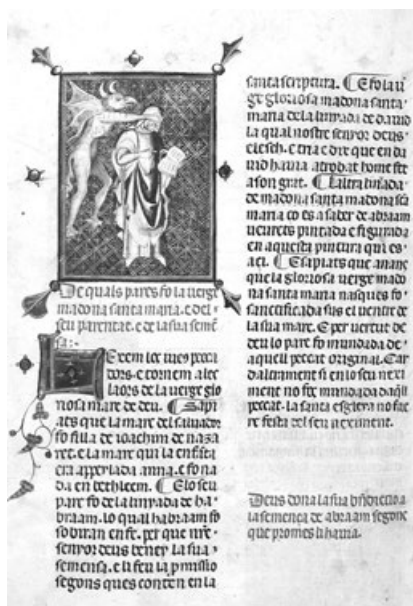 De quals pares fo la uerge
madona santa maria. e del
seu parentat. e de la sua semẽ
sa:-
dors. e tornem a les
laors de la uerge glo
riosa mare de deu. Sapi
ats que la mare del saluador
fo filla de ioachim de naza
ret. e la mare qui la enfanta
era appellada anna. e fo na
da en bethleem. E lo seu
pare fo de la linyada de ha
braam. lo qual habraam fo
en fe. per que nr̃e
senyor deus beney la sua
semensa. e li feu la ꝓmissio
segons ques conten en la
santa scriptura. E fo la uẽ
ge gloriosa madona santa
maria de la linyada de dauid
la qual nostre senyor deus
elesch. e tria e dix que en da
uid hauia atrobat home fet
a son grat. Laltra linyada
de madona santa madona sẽa
maria co es a saber de abraam
veurets pintada e figurada
en aquesta pintura qui es
aci. E sapiats que anans
que la gloriosa uerge mado
na santa maria nasques fo
sanctificada sus el uentre de
la sua mare. E per uertut de
deu lo pare fo mundada de
aquell peccat original. Car
daltrament si en lo seu nexi
ment no fos mundada daq̃ll
peccat. la santa esgleya no fa
re festa del seu neximent.
Deus dona la sua bñdiccio a
la semença de abraam segons
que promes li hauia.